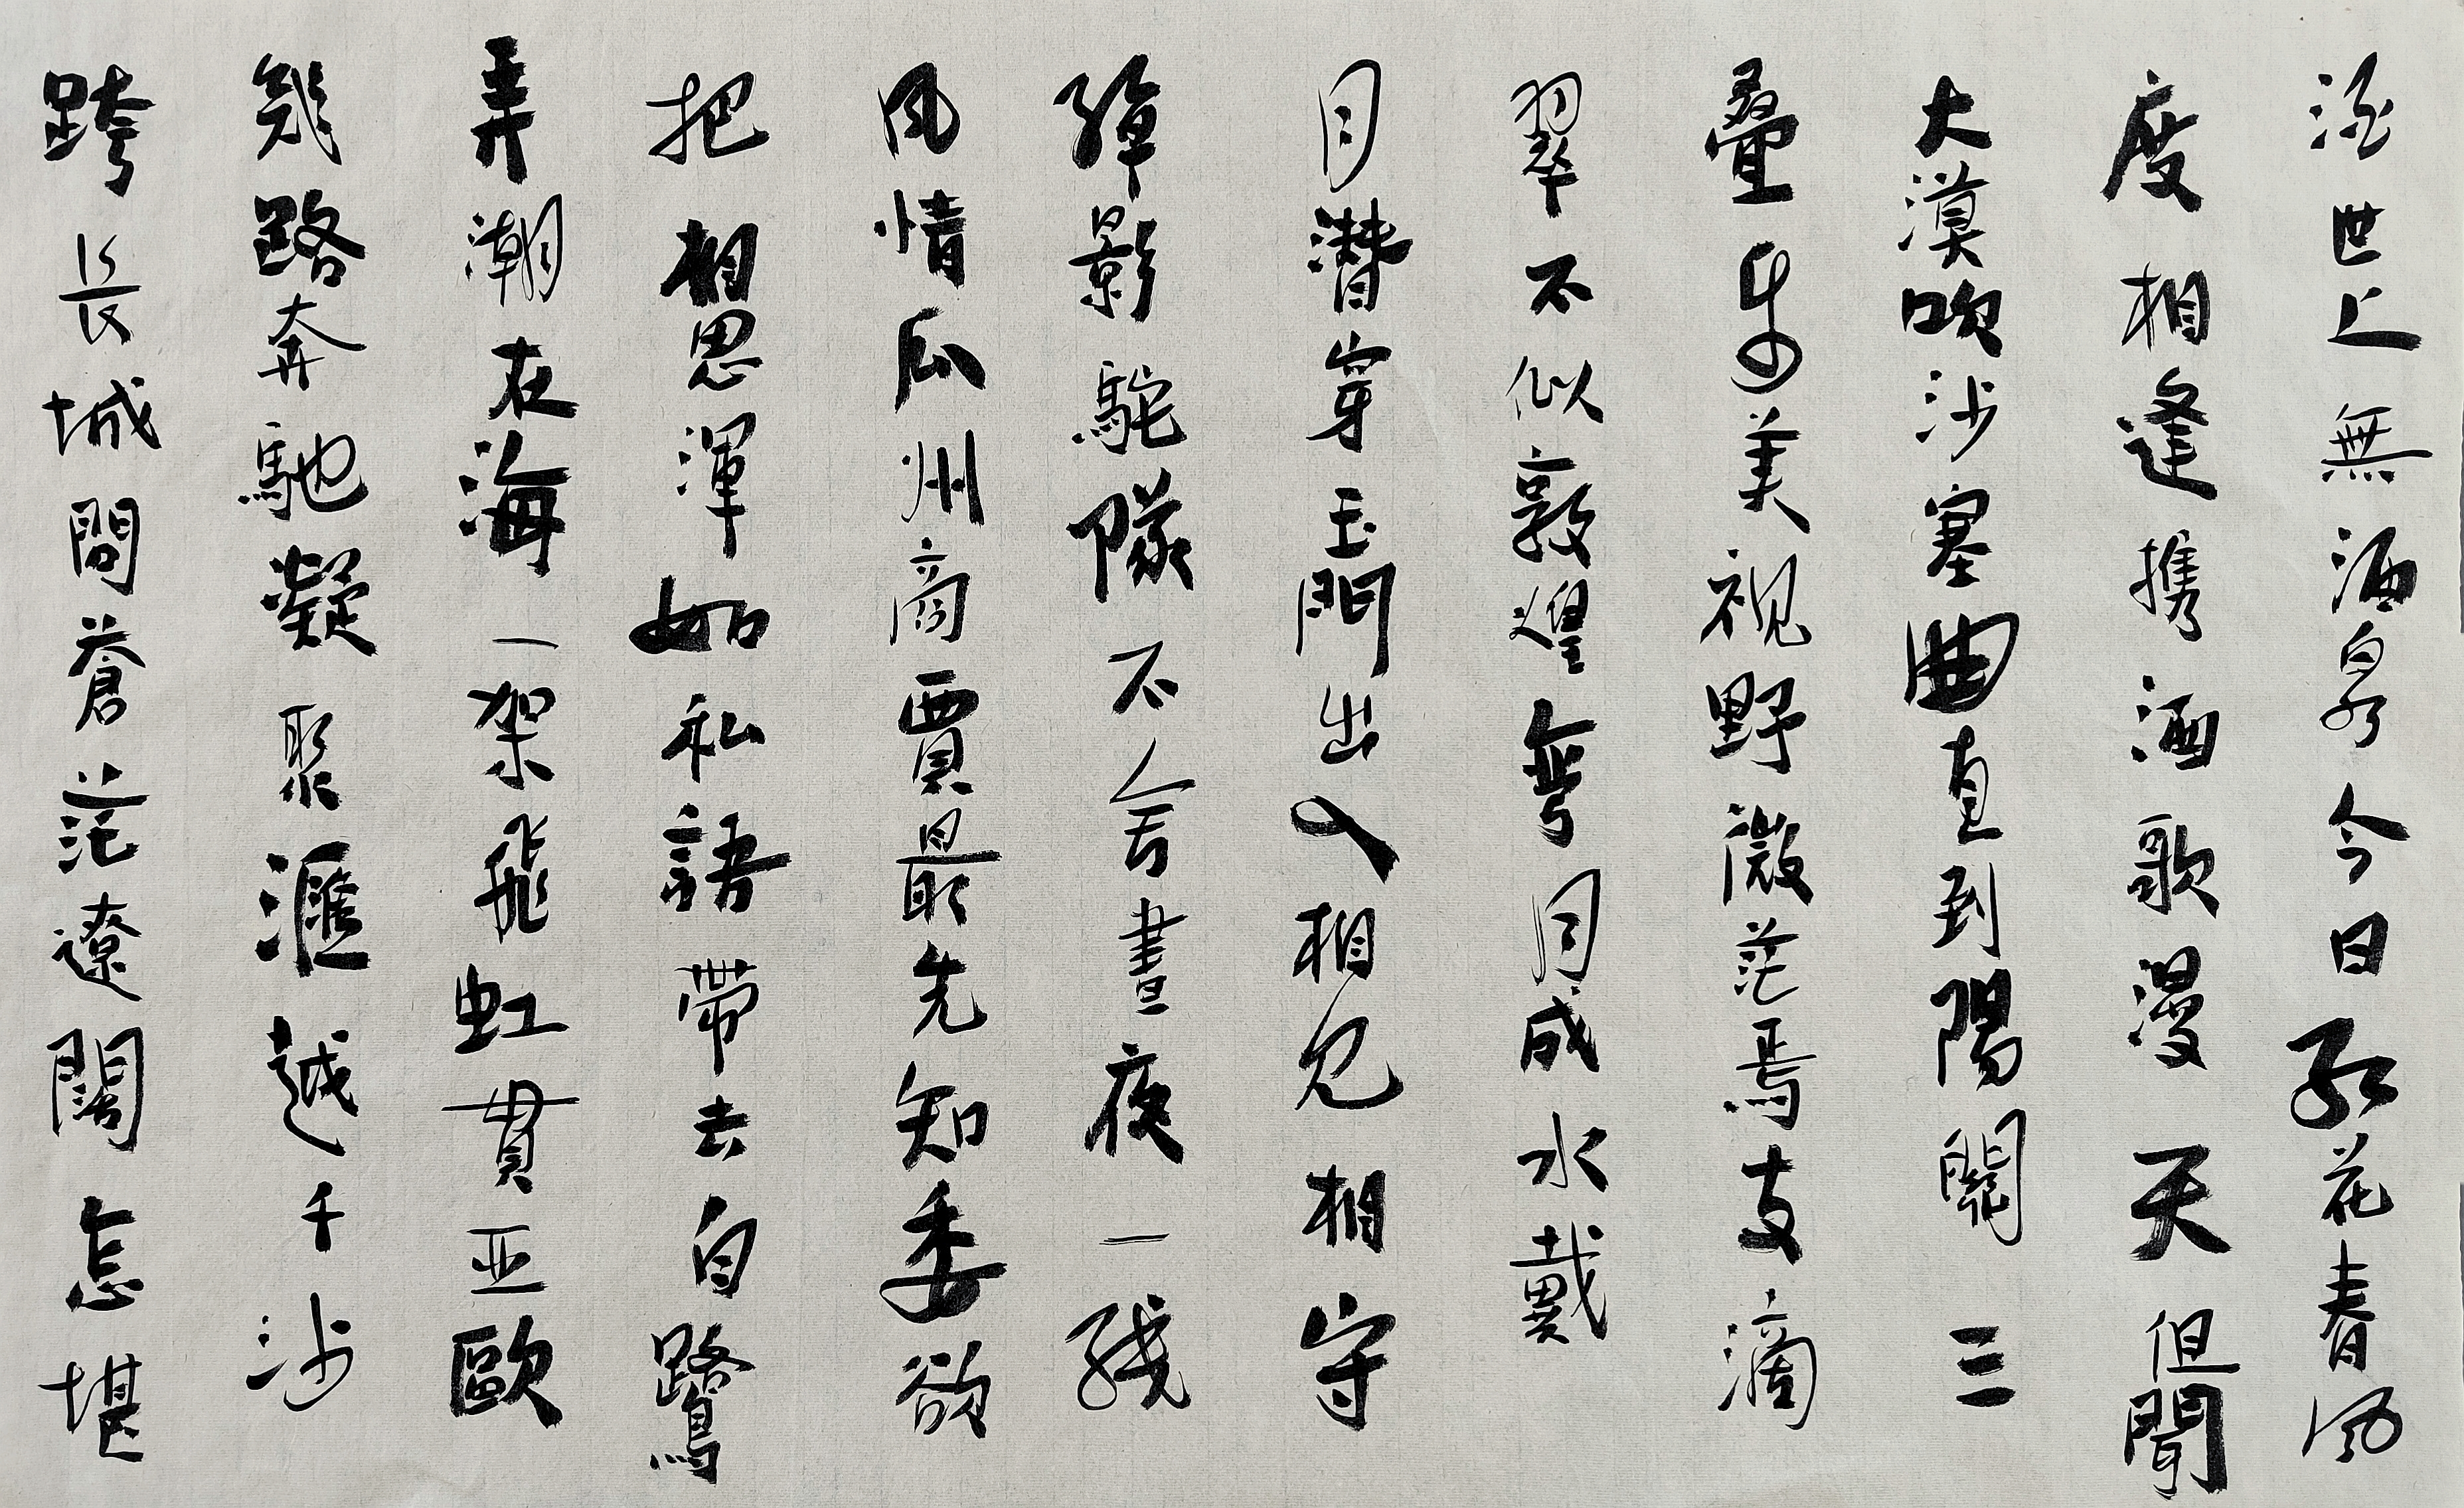 世上無酒泉今日紅花春風
度相逢携酒歌漫天但聞
大漠吹沙塞曲直到陽關三
疊步美視野微茫焉支滴
翠不似敦煌彎月成水戴
月潛穿玉門出入相見相守
綽影駝隊不舍晝夜一綫
風情瓜州商賈最先知委欲
把相思渾如私語帶去白鷺
弄潮在海一架飛虹貫亚歐
幾路奔馳凝聚滙越千沙
跨長城間蒼茫遼闊怎堪